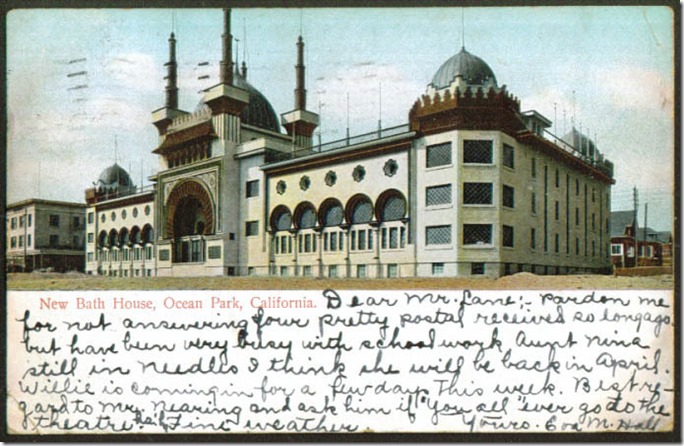 New Bath House, Ocean Park, California.
Dear Mr. Lane:- Pardon me
for not answering your pretty postal received so long ago,
but have been very busy with school work Aunt nina
still in Needles I think she will be back in April.
Willie is coming in for a few days This week. Best re-
gard to Mr. Nearing and ask him if "You all" ever go to the
theatre Fine weather Yours. Eva M. Hall